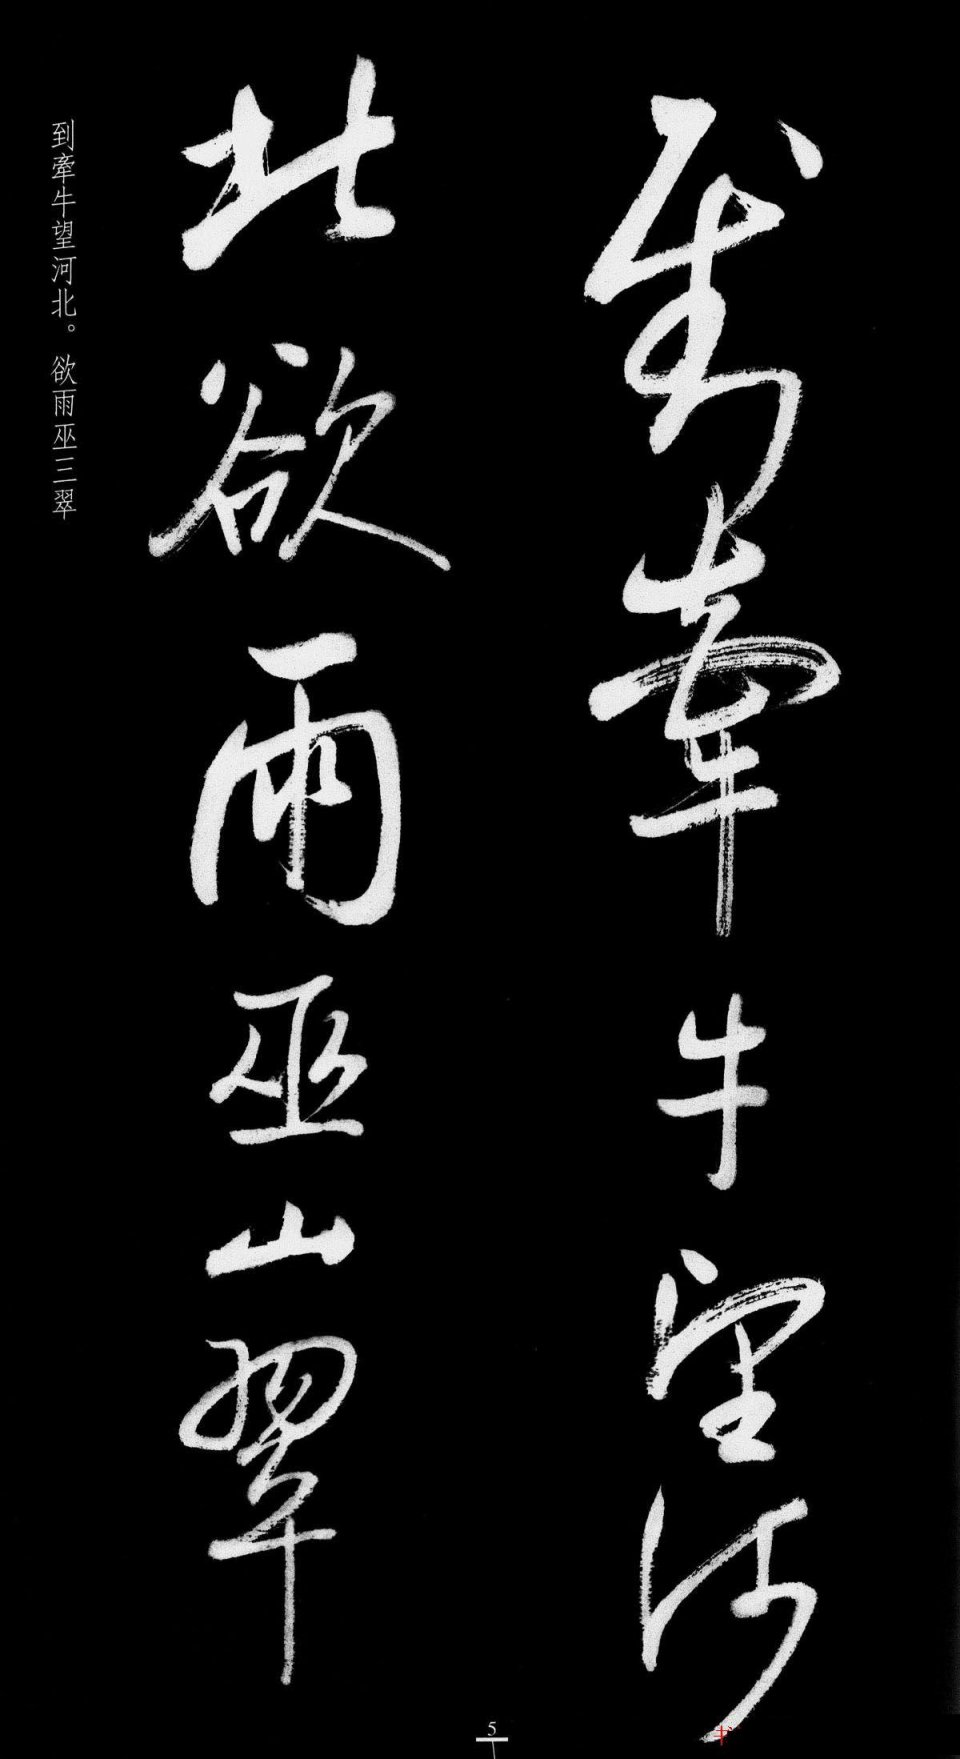 到牽牛望河
北欲雨巫山翠
到牽牛望河北。欲雨巫三翠
5